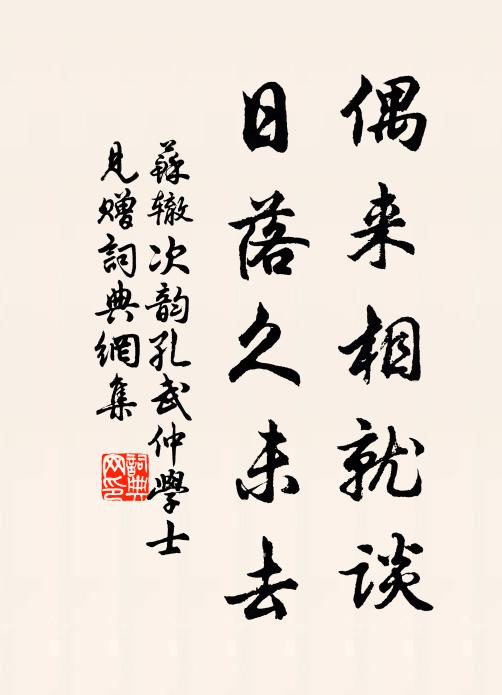 偶来相就談
日落久未去
蘇辙次韵孔武仲學士
見赠詞典網集
詞典
网印